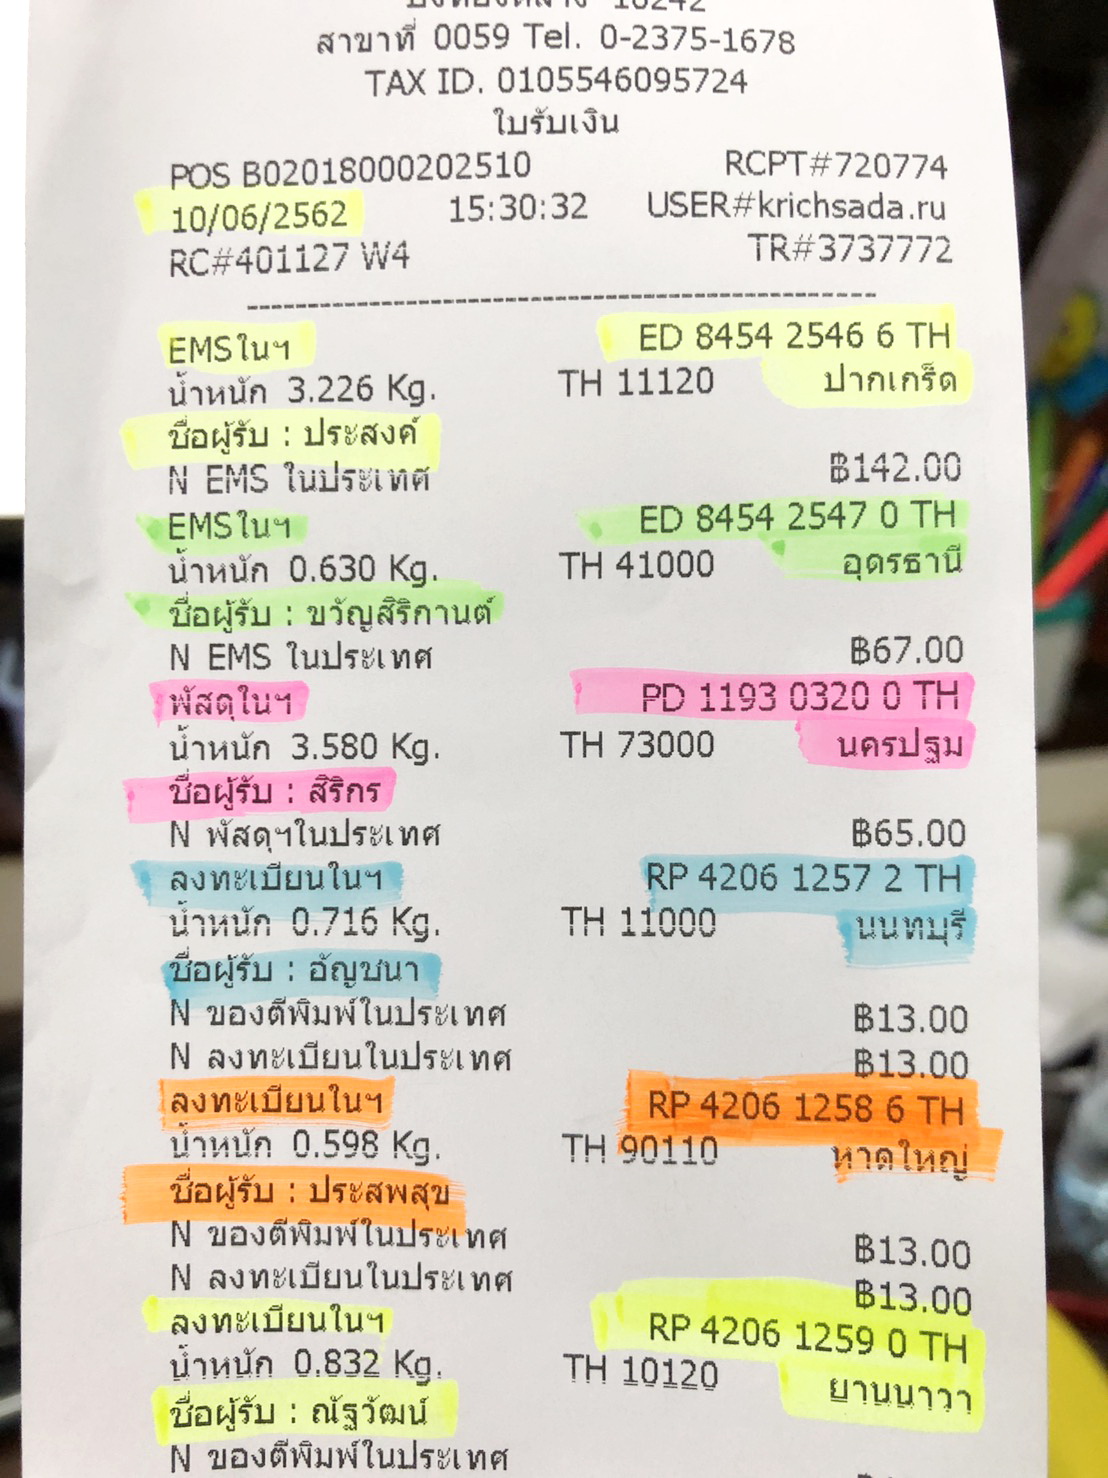 สาขาที่ 0059 Tel. 0-2375-1678
TAX ID. 0105546095724
ใบรับเงิน
POS B02018000202510 RCPT#720774
10/06/2562 15:30:32 USER#krichsada.ru
RC#401127 W4 TR#3737772
EMSในฯ ED 8454 2546 6 TH
น้ำหนัก 3.226 Kg. TH 11120 ปากเกร็ด
ชื่อผู้รับ : ประสงค์
N EMS ในประเทศ ฿142.00
EMSในฯ ED 8454 2547 0 TH
น้ำหนัก 0.630 Kg. TH 41000 อุดรธานี
ชื่อผู้รับ : ขวัญสิริกานต์
N EMS ในประเทศ ฿67.00
พัสดุในฯ PD 1193 0320 0 TH
น้ำหนัก 3.580 Kg. TH 73000 นครปฐม
ชื่อผู้รับ : สิริกร
N พัสดุฯในประเทศ ฿65.00
ลงทะเบียนในฯ RP 4206 1257 2 TH
น้ำหนัก 0.716 Kg. TH 11000 นนทบุรี
ชื่อผู้รับ : อัญชนา
N ของตีพิมพ์ในประเทศ ฿13.00
N ลงทะเบียนในประเทศ ฿13.00
ลงทะเบียนในฯ RP 4206 1258 6 TH
น้ำหนัก 0.598 Kg. TH 90110 หาดใหญ่
ชื่อผู้รับ : ประสพสุข
N ของตีพิมพ์ในประเทศ ฿13.00
N ลงทะเบียนในประเทศ ฿13.00
ลงทะเบียนในฯ RP 4206 1259 0 TH
น้ำหนัก 0.832 Kg. TH 10120 ยานนาวา
ชื่อผู้รับ : ณัฐวัฒน์
N ของตีพิมพ์ในประเทศ